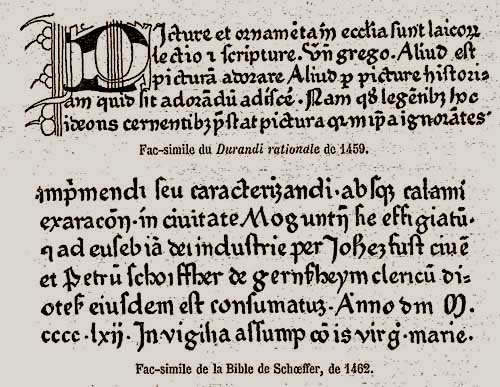 Picture et ornamēta in ecclīa sunt laicorꝝ
lectio ⁊ scripture. Vn̄ grego. Aliud est
picturā adorare Aliud ꝑ picture histori-
am quid sit adorādū adiscē. Nam qđ legētibꝫ
ideons cernentibꝫ p̄stat pictura ignorātes
Fac-simile du Durandi rationale de 1459.
imp̄mendi seu caracterizandi. absqꝫ calami
exaracōn. in ciuitate Moguntn̄ sic effigiatū.
⁊ ad eusebiā dei industrie per Johēz fust ciuē
et Petrū schoiffher de gernsheym clericū di-
otes̄ eiusdem est consumatuꝫ. Anno dm̄ M.
cccc. lxij. In vigilia assump cō is virḡ. marie.
Fac-simile de la Bible de Schœffer, de 1462.